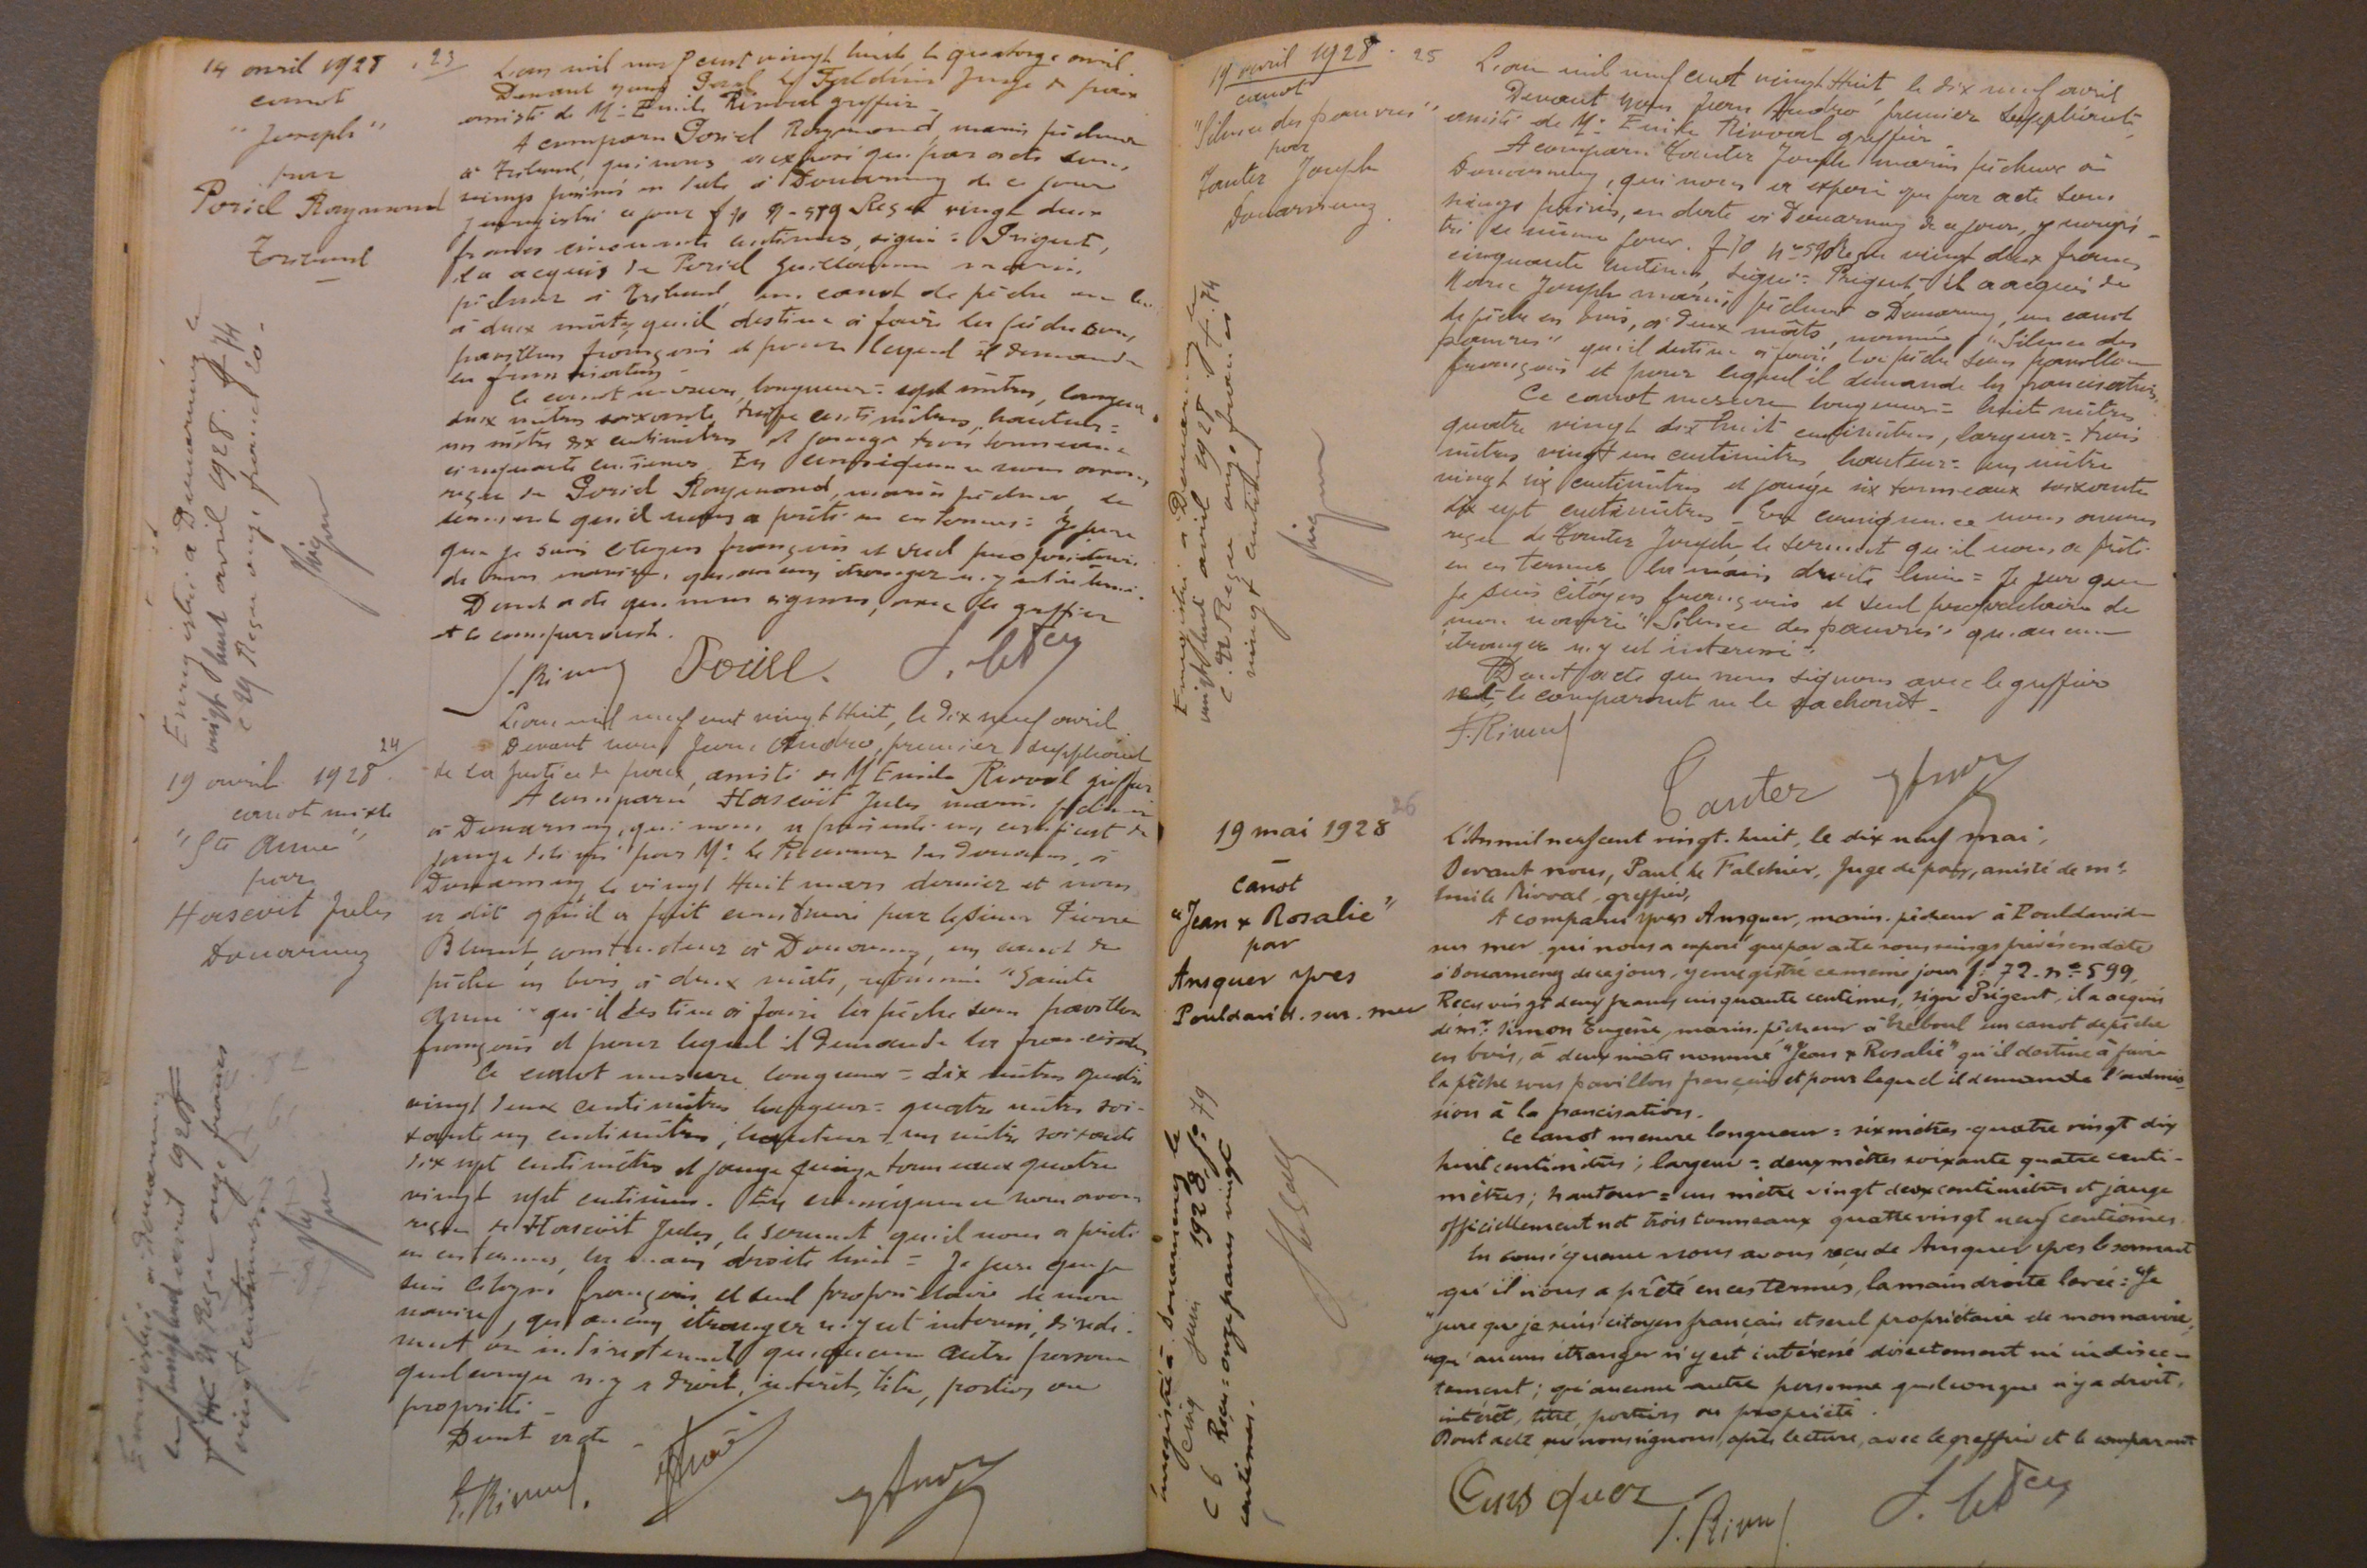 14 avril 1928 . 23
canot
"Joseph"
par
Poriel Raymond
Tréboul
Enregistré à Douarnenez le
vingt huit avril 1928. f° 74
c 29 Reçu onze francs 20
L'an mil neuf cent vingt huit le quatorze avril
Devant nous Paul Le Falchier Juge de paix
assisté de Me Emile Rivoal greffier
A comparu Poriel Raymond, marin pêcheur
à Tréboul, qui nous a exposé que par acte sous
seings privés en date à Douarnenez de ce jour
y enregistré ce jour f° 70 n° 579 Reçu vingt deux
francs cinquante centimes, signé = Prigent,
il a acquis de Poriel Guillaume marin
pêcheur à Tréboul, un canot de pêche en bois
à deux mâts, qu'il destine à faire la pêche sous
pavillon français et pour lequel il demande
la francisation
Ce canot mesure, longueur = sept mètres, largeur =
deux mètres soixante treize centimètres, hauteur =
un mètre dix centimètres et jauge trois tonneaux
cinquante centièmes. En conséquence nous avons
reçu de Poriel Raymond, marin pêcheur le
serment qu'il nous a prêté en ces termes = Je jure
que je suis citoyen français et seul propriétaire
de mon navire, qu'aucun étranger n'y est intéressé.
Dont acte que nous signons, avec le greffier
et le comparant.
E. Rivoal Poriel. P. Le Falc
24
19 avril 1928
canot mixte
"Ste Anne"
par
Hascoët Jules
Douarnenez
Enregistré à Douarnenez
le vingt huit avril 1928
f° 74 c 21 Reçu onze francs
vingt centimes
L'an mil neuf cent vingt Huit, le dix neuf avril
Devant nous Jean Andro, premier suppléant
de la Justice de paix, assisté de Me Emile Rivoal greffier
A comparu Hascoët Jules marin pêcheur
à Douarnenez, qui nous a présenté un certificat de
jauge délivré par Mr le Receveur des Douanes, à
Douarnenez le vingt Huit mars dernier et nous
a dit qu'il a fait construire par le sieur Pierre
constructeur à Douarnenez, un canot de
pêche en bois à deux mâts, nommé "Sainte
Anne" qu'il destine à faire la pêche sous pavillon
français et pour lequel il demande la francisation
Ce canot mesure longueur = dix mètres quatre
vingt deux centimètres largeur = quatre mètres soi-
xante un centimètres, hauteur = un mètre soixante
dix sept centimètres et jauge quinze tonneaux quatre
vingt sept centièmes. En conséquence nous avons
reçu de Hascoët Jules, le serment qu'il nous a prêté
en ces termes, la main droite levée = Je jure que je
suis citoyen français et seul propriétaire de mon
navire, qu'aucun étranger n'y est intéressé, directe-
ment ou indirectement, qu'aucune autre personne
quelconque n'y a droit, intérêt, titre, portion ou
propriété _
Dont acte _
E. Rivoal.
19 avril 1928 . 25
canot
"Silence des pauvres"
par
Tanter Joseph
Douarnenez.
Enregistré à Douarnenez le
vingt huit avril 1928 f° 74
c 22 Reçu onze francs
vingt centimes
L'an mil neuf cent vingt Huit, le dix neuf avril
Devant nous Jean Andro premier suppléant,
assisté de Me Emile Rivoal greffier
A comparu Tanter Joseph marin pêcheur à
Douarnenez, qui nous a exposé que par acte sous
seings privés, en date à Douarnenez de ce jour, y enregis-
tré le même jour. f° 70 n° 590 Reçu vingt deux francs
cinquante centimes, signé = Prigent, il a acquis de
Marec Joseph marin pêcheur à Douarnenez, un canot
de pêche en bois, à deux mâts, nommé "Silence des
pauvres" qu'il destine à faire la pêche sous pavillon
français et pour lequel il demande la francisation,
Ce canot mesure longueur = huit mètres
quatre vingt dix huit centimètres, largeur = trois
mètres vingt un centimètres, hauteur = un mètre
vingt six centimètres et jauge six tonneaux soixante
dix sept centimètres _ En conséquence nous avons
reçu de Tanter Joseph le serment qu'il nous a prêté
en ces termes la main droite levée = Je jure que
je suis citoyen français et seul propriétaire de
mon navire "Silence des pauvres" qu'aucun
étranger n'y est intéressé".
Dont acte que nous signons avec le greffier
le comparant ne le sachant _
E. Rivoal
Tanter
26
19 mai 1928
canot
"Jean & Rosalie"
par
Ansquer Yves
Pouldavid. sur. mer
Enregistré à Douarnenez le
cinq juin 1928 f° 79
C 6 Reçu : onze francs vingt
centimes.
L'An mil neuf cent vingt. huit, le dix neuf mai,
Devant nous, Paul Le Falchier, Juge de paix, assisté de me
Emile Rivoal, greffier,
A comparu Yves Ansquer, marin. pêcheur à Pouldavid
sur mer qui nous a exposé que par acte sous seings privés en date
à Douarnenez de ce jour, y enregistré ce même jour f° 72. n° 599,
Reçu vingt deux francs cinquante centimes, signé Prigent, il a acquis
de mr Simon Eugène, marin. pêcheur à Tréboul un canot de pêche
en bois, à deux mâts nommé "Jean & Rosalie" qu'il destine à faire
la pêche sous pavillon français et pour lequel il demande l'admis-
sion à la francisation.
Ce canot mesure longueur = six mètres quatre vingt dix
huit centimètres ; largeur = deux mètres soixante quatre centi-
mètres ; hauteur = un mètre vingt deux centimètres et jauge
officiellement net trois tonneaux quatre vingt neuf centièmes.
En conséquence nous avons reçu de Ansquer Yves le serment
qu'il nous a prêté en ces termes, la main droite levée : "Je
"jure que je suis citoyen français et seul propriétaire de mon navire,
"qu'aucun étranger n'y est intéressé directement ni indirec-
tement ; qu'aucune autre personne quelconque n'y a droit,
intérêt, titre, portion ou propriété.
Dont acte que nous signons, après lecture, avec le greffier et le comparant
Ansquer E. Rivoal P. Le Falc